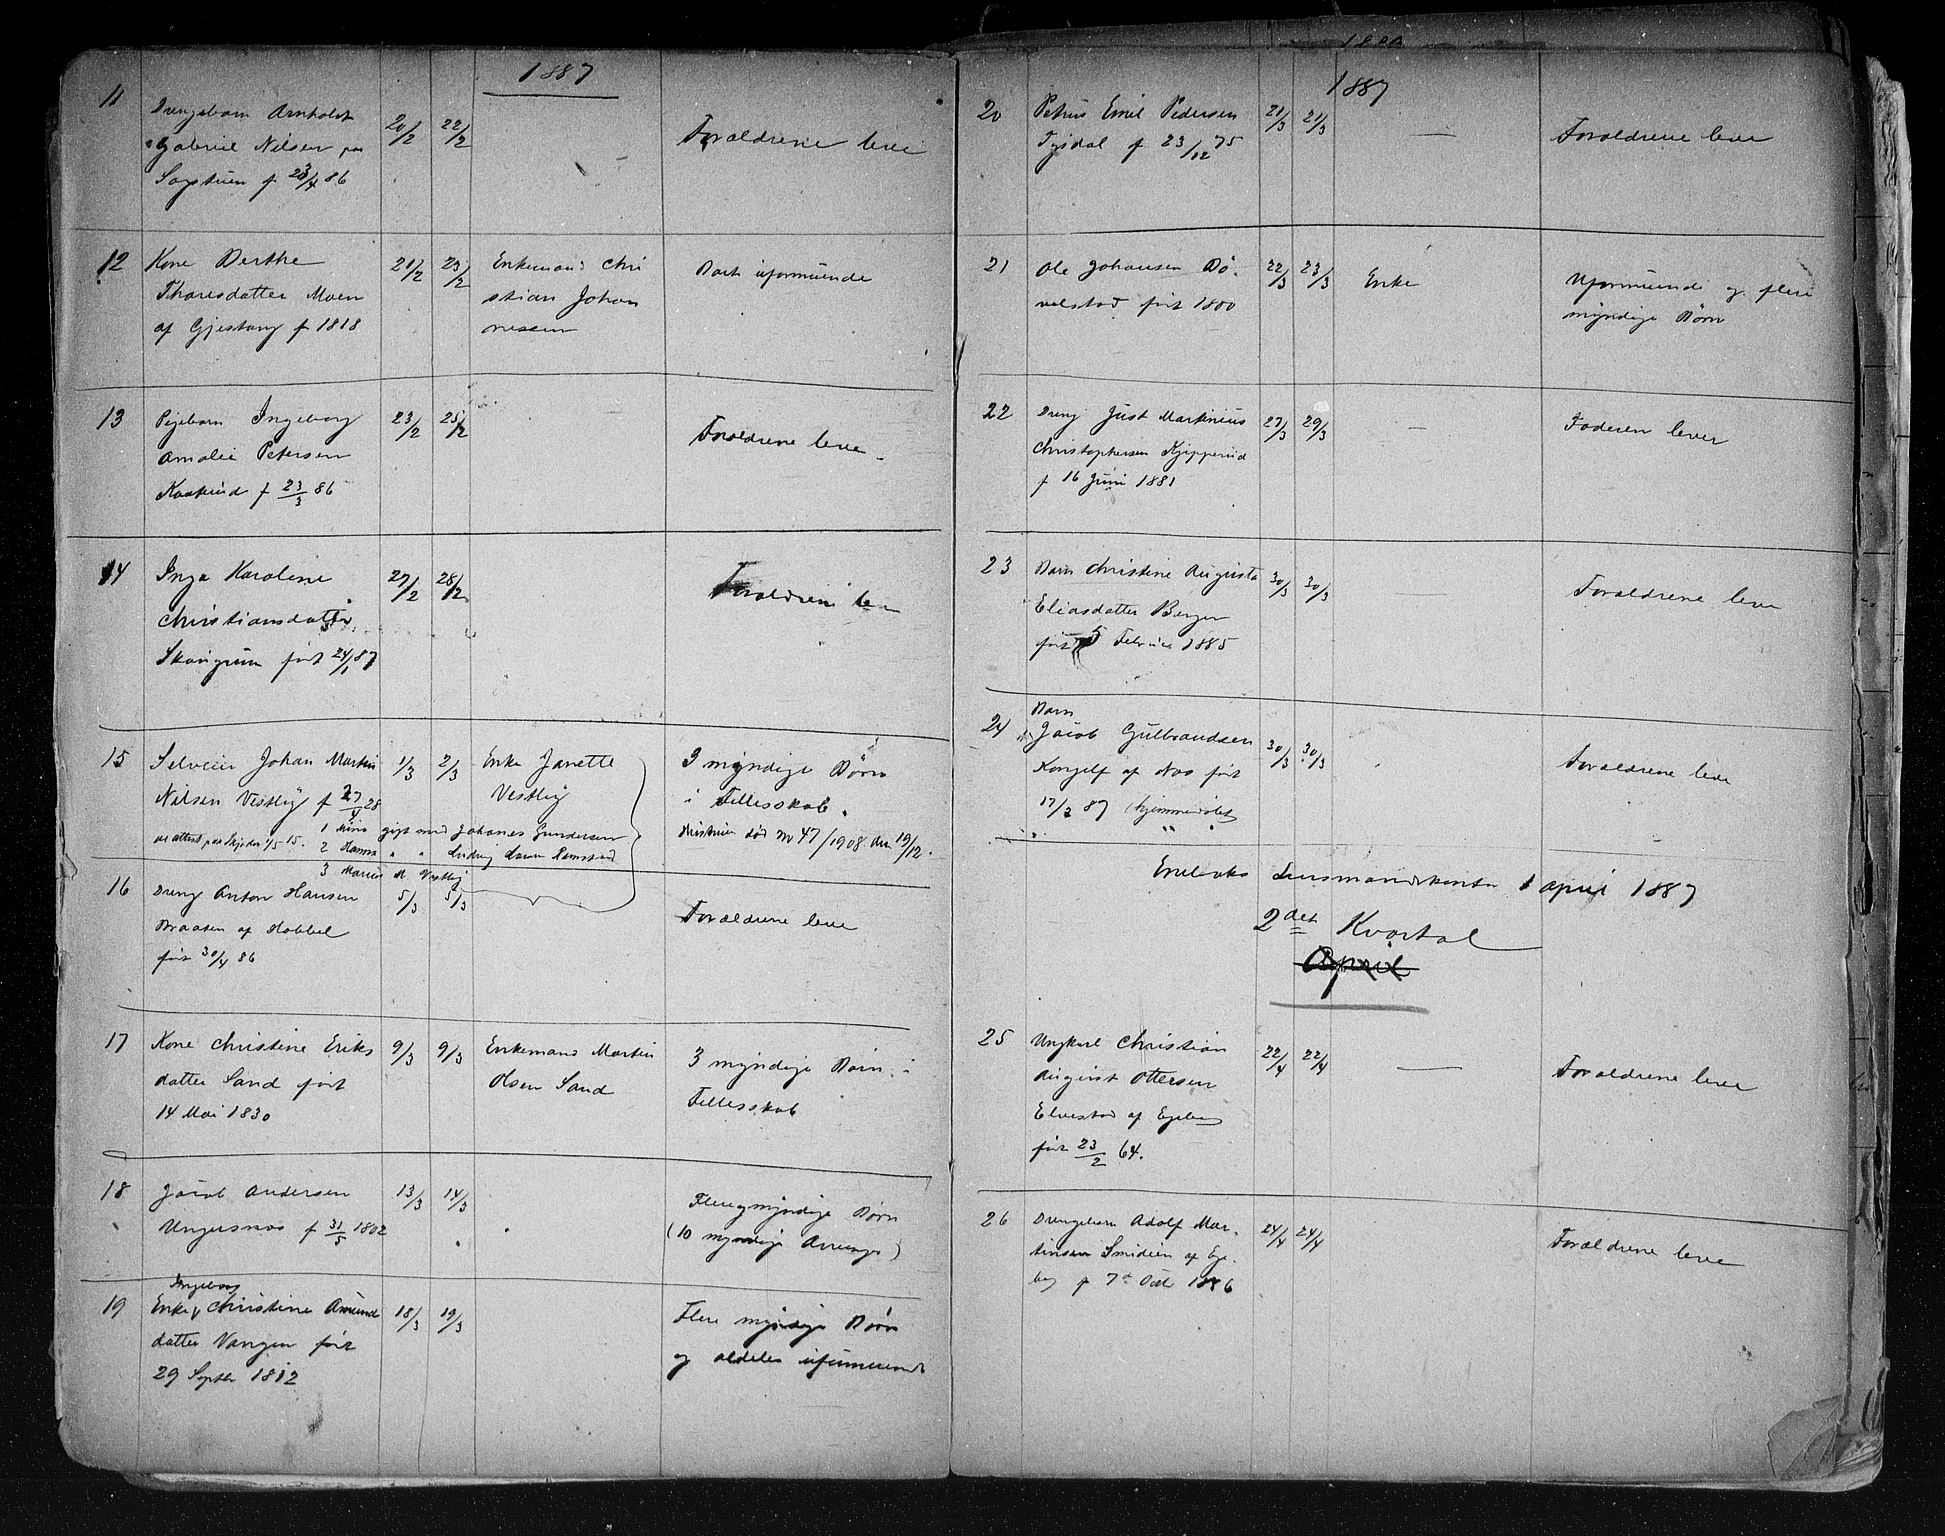 1887
11
Drengebarn Arnholdt
Gabriel Nilsen paa
f 23/4 86
20/2 22/2
Forældrene leve
12
Kone Berthe
Thoresdatter Moen
af Gjestang f 1818
21/2 23/2
Enkemand Chri
stian Johan
nessen
Bort uformuende
13
Pigebarn Ingeborg
Amalie Petersen
f 23/3 86
23/2 25/2
Forældrene leve
14
Inga Karoline
Christiansdatter
Skaugrum født 24/1 87
27/2 28/2
Forældrene leve
15
Selveier Johan Martin
Nilsen Vestby f 27/4 28
1/3 2/3
Enke Janette
Vestby
3 myndige Børn
i Fellesskab.
1 gift med Johanes Gundersen
2 Hanna " " Ludvig Ramstad
død No 47/1908 den 19/12.
3 Marius M. Vestby
16
Dreng Anton Hansen
Braaten af Hobbel
født 30/4 86
5/3 5/3
Forældrene leve
17
Kone Christine Eriks
datter Sand født
14 Mai 1830
9/3 9/3
Enkemand Martin
Olsen Sand
3 myndige Børn i
Fellesskab
18
Jacob Andersen
Ungersnæs f 31/5 1802
13/3 14/3
Flere myndige Børn
(10 myndige Arvinger)
19
Ingeborg
Enke Christine Amund
datter Vangen født
29 Septbr 1812
18/3 19/3
Flere myndige Børn
og aldeles uformuende
1887
20
Petrus Emil Pedersen
f 23/12 75
21/3 21/3
—
Forældrene leve
21
Ole Johansen Bø-
velstad født 1800
22/3 23/3
Enke
Uformuende og flere
myndige Børn
22
Dreng Just Martinius
Christophersen Kjipperud
f 16 Juni 1881
27/3 29/3
—
Faderen lever
23
Barn Christine Augusta
Eliasdatter Berger
født 5 Februar 1885
30/3 30/3
—
Forældrene leve
24
Barn
Jacob Gulbrandsen
af født
17/3 87
30/3 30/3
Forældrene leve
Lensmandskontor 1 april 1887
2det Kvartal
April
25
Ungkarl Christian
August Ottersen
Elvestad af
født 23/2 64.
22/4 22/4
—
Forældrene leve
26
Drengebarn Adolf Mar-
tinsen af
f 7de Octb 1886
24/4 24/4
Forældrene leve